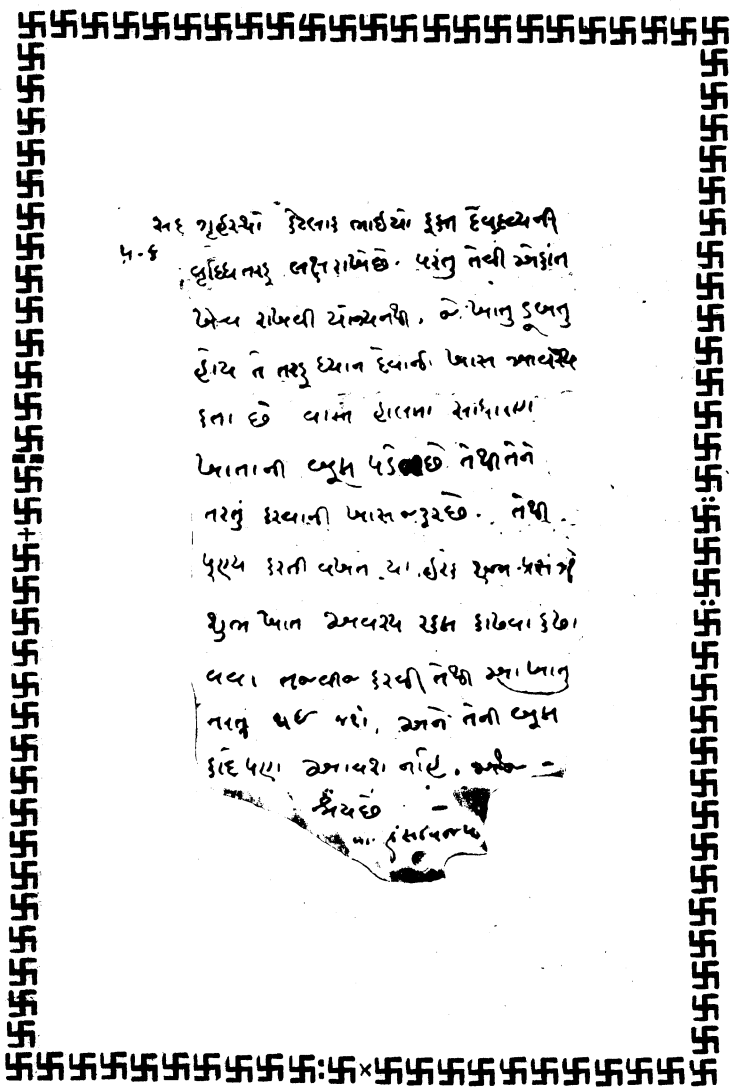 સદ ગૃહસ્થો કેટલાક ભાઇયો ફક્ત દેવદ્રવ્યની
વૃધ્ધિ તરફ લક્ષ રાખેછે. પરંતુ તેવી એકાંત
ખેચ રાખવી યોગ્યનથી, જે ખાતુ ડૂબતુ
હોય તે તરફ ધ્યાન દેવાની ખાસ આવશ્ય
કતા છે વાસ્તે હાલમા સાધારણ
ખાતાની બૂમ પડે છે તેથી તેને
તરતું કરવાની ખાસ જરૂરછે. તેથી
પૂણ્ય કરતી વખત યા હરેક શુભ પ્રસંગે
શુભ ખાતે અવશ્ય રકમ કાઢવા કઢા
વવા તજવીજ કરવી તેથી આ ખાતુ
તરતું થઈ જશે, અને તેની બૂમ
કદિ પણ આવશે નહિ. એજ -
શ્રેયછે -